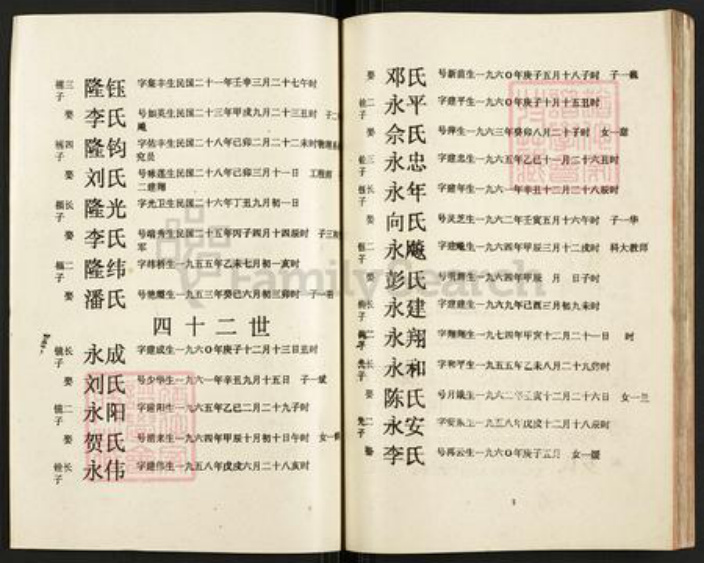 三子 隆钰 字集丰生民国二十一年壬申三月二十七午时
娶 李氏 号如英生民国二十三年甲戌九月二十三丑时 子二
飚
四子 隆钧 字佑丰生民国二十八年己卯二月二十二未时
究员
娶 刘氏 生民国二十八年己卯三月十一日 工程师
二建翔
福长子 隆光 字光卫生民国二十六年丁丑九月初一日
娶 李氏 秀生民国二十五年丙子四月十四辰时 子三
军
福二子 隆纬 生一九五五年乙未七月初一亥时
娶 潘氏 生一九五三年癸巳六月初三卯时 子一
四十二世
长子 永成 字建成生一九六〇年庚子十二月十三日丑时
娶 刘氏 号少华生一九六一年辛丑九月十五日 子一斌
二子 永阳 字建阳生一九六五年乙巳二月二十九子时
娶 贺氏 生一九六四年甲辰十月初十日午时 女一
长子 永伟 字建伟生一九五八年戊戌六月二十八亥时
娶 邓氏 号新前生一九六〇年庚子五月十八子时 子一
二子 永平 字建平生一九六〇年庚子十月十五丑时
娶 佘氏 号萍生一九六三年癸卯八月二十子时 女一
三子 永忠 字建忠生一九六五年乙巳十一月二十六丑时
长子 永年 字建年生一九六一年辛丑十二月二十八辰时
娶 向氏 号灵芝生一九六二年壬寅五月十六午时 子一华
二子 永飚 字建飚生一九六四年甲辰三月十二戌时 科大教师
娶 彭氏 生一九六四年甲辰 月 日子时
长子 永建 字建建生一九六九年己酉三月初九未时
二子 永翔 字翔翔生一九七四年甲寅十二月二十一日 时
光长子 永和 字和平生一九五五年乙未八月二十九酉时
娶 陈氏 号月娥生一九六二年壬寅十二月二十六日 女一兰
光二子 永安 生一九五八年戊戌十二月十八辰时
娶 李氏 号再云生一九六〇年庚子五月 女一媛
FamilySearch